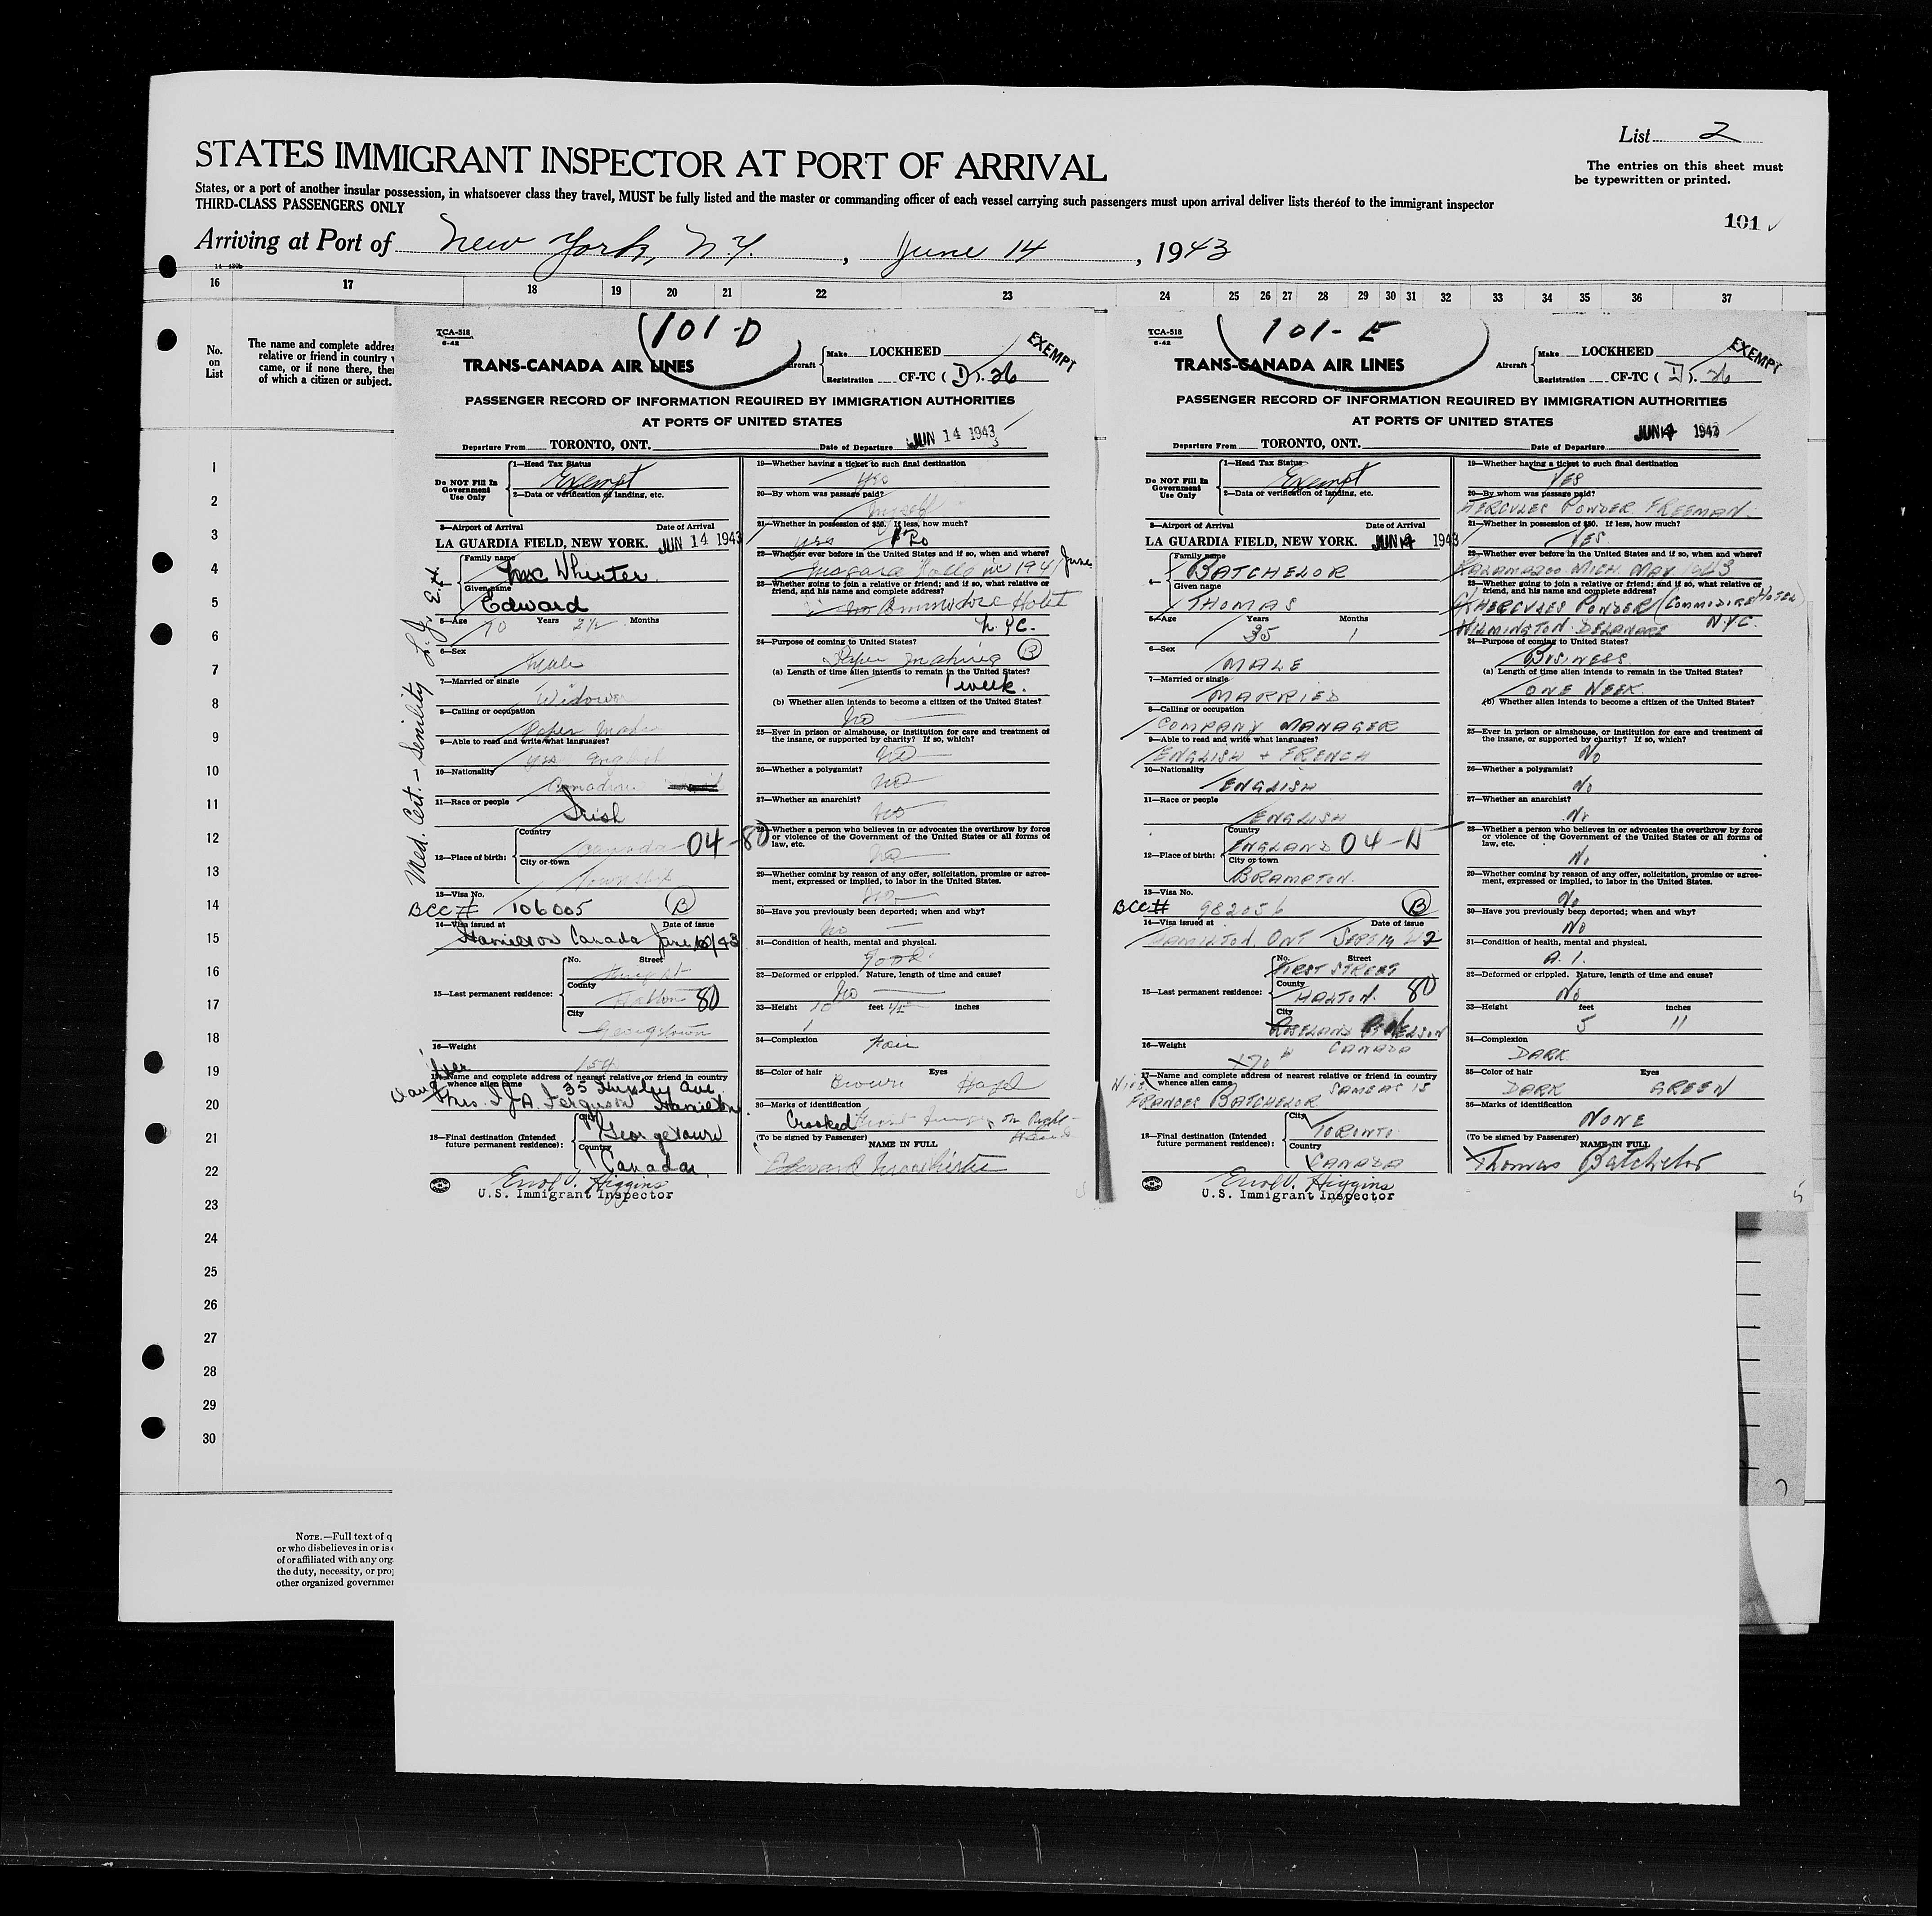 List 2
STATES IMMIGRANT INSPECTOR AT PORT OF ARRIVAL
The entries on this sheet must
be typewritten or printed.
States, or a port of another insular possession, in whatsoever class they travel, MUST be fully listed and the master or commanding officer of each vessel carrying such passengers must upon arrival deliver lists thereof to the immigrant inspector
THIRD-CLASS PASSENGERS ONLY
101
Arriving at Port of New York, N.Y., June 14, 1943
16 17 18 19 20 21 22 23 24 25 26 27 28 29 30 31 32 33 34 35 36 37
No.
on
List
The name and complete addres
relative or friend in country
came, or if none there, the
of which a citizen or subject.
1
2
3
4
5
6
7
8
9
10
11
12
13
14
15
16
17
18
19
20
21
22
23
24
25
26
27
28
29
30
NOTE.—Full text of q
or who disbelieves in or is
of or affiliated with any org
the duty, necessity, or pro
other organized governme
Med. Cert. - Senility
TCA-518
6-42
101-D
TRANS-CANADA AIR LINES
Aircraft
Make LOCKHEED
Registration CF-TC (D). 26
EXEMPT
PASSENGER RECORD OF INFORMATION REQUIRED BY IMMIGRATION AUTHORITIES
AT PORTS OF UNITED STATES
Departure From TORONTO, ONT. Date of Departure JUN 14 1943
Do NOT Fill In
Government
Use Only
1—Head Tax Status
Exempt
2—Data or verification of landing, etc.
3—Airport of Arrival Date of Arrival
LA GUARDIA FIELD, NEW YORK. JUN 14 1943
4— Family name
Mc Whirter
Given name
Edward
5—Age 70 Years 2½ Months
6—Sex
Male
7—Married or single
Widower
8—Calling or occupation
Paper Maker
9—Able to read and write what languages?
yes English
10—Nationality
Canadian
11—Race or people
Irish
12—Place of birth:
Country
Canada 04-80
City or town
Township
13—Visa No.
BCC # 106005 B
14—Visa issued at Date of issue
Hamilton Canada June 10/43
15—Last permanent residence:
No. Street
County
Halton 80
City
Georgetown
16—Weight
154
17—Name and complete address of nearest relative or friend in country
whence alien came 35 Ave
Mrs. J. A. Ferguson Hamilton
18—Final destination (Intended
future permanent residence):
City
Georgetown
Country
Canada
Errol V. Higgins
U.S. Immigrant Inspector
19—Whether having a ticket to such final destination
Yes
20—By whom was passage paid?
Myself
21—Whether in possession of $50. If less, how much?
yes
22—Whether ever before in the United States and if so, when and where?
Niagara Falls in 1941 June
23—Whether going to join a relative or friend; and if so, what relative or
friend, and his name and complete address?
no Commodore Hotel
N.Y.C.
24—Purpose of coming to United States?
Paper making B
(a) Length of time alien intends to remain in the United States?
1 week.
(b) Whether alien intends to become a citizen of the United States?
no
25—Ever in prison or almshouse, or institution for care and treatment of
the insane, or supported by charity? If so, which?
no
26—Whether a polygamist?
no
27—Whether an anarchist?
no
28—Whether a person who believes in or advocates the overthrow by force
or violence of the Government of the United States or all forms of
law, etc.
no
29—Whether coming by reason of any offer, solicitation, promise or agree-
ment, expressed or implied, to labor in the United States.
no
30—Have you previously been deported; when and why?
no
31—Condition of health, mental and physical.
good
32—Deformed or crippled. Nature, length of time and cause?
no
33—Height feet inches
34—Complexion
Fair
35—Color of hair Eyes
Brown Hazel
36—Marks of identification
Crooked front finger on right
Hand
(To be signed by Passenger) NAME IN FULL
Edward MacWhirter
TCA-518
6-42
101-E
TRANS-CANADA AIR LINES
Aircraft
Make LOCKHEED
Registration CF-TC (D). 26
EXEMPT
PASSENGER RECORD OF INFORMATION REQUIRED BY IMMIGRATION AUTHORITIES
AT PORTS OF UNITED STATES
Departure From TORONTO, ONT. Date of Departure JUN 14 1943
Do NOT Fill In
Government
Use Only
1—Head Tax Status
Exempt
2—Data or verification of landing, etc.
3—Airport of Arrival Date of Arrival
LA GUARDIA FIELD, NEW YORK. JUN 14 1943
4— Family name
BATCHELOR
Given name
THOMAS
5—Age 35 Years 1 Months
6—Sex
MALE
7—Married or single
MARRIED
8—Calling or occupation
COMPANY MANAGER
9—Able to read and write what languages?
ENGLISH + FRENCH
10—Nationality
ENGLISH
11—Race or people
ENGLISH
12—Place of birth:
Country
ENGLAND 04-N
City or town
BRAMPTON.
13—Visa No.
BCC # 982056 B
14—Visa issued at Date of issue
HAMILTON, ONT SEPT 19 42
15—Last permanent residence:
No. Street
FIRST STREET
County
HALTON. 80
City
16—Weight
170 CANADA
17—Name and complete address of nearest relative or friend in country
whence alien came SAME AS 15
FRANCES BATCHELOR
18—Final destination (Intended
future permanent residence):
City
TORONTO
Country
CANADA
Errol V. Higgins
U.S. Immigrant Inspector
19—Whether having a ticket to such final destination
YES
20—By whom was passage paid?
HERCULES POWDER FREEMAN.
21—Whether in possession of $50. If less, how much?
YES
22—Whether ever before in the United States and if so, when and where?
KALAMAZOO MICH. MAY 1943
23—Whether going to join a relative or friend; and if so, what relative or
friend, and his name and complete address?
HERCULES POWDER (COMMODORE HOTEL)
WILMINGTON DELAWARE N.Y.C.
24—Purpose of coming to United States?
BUSINESS
(a) Length of time alien intends to remain in the United States?
ONE WEEK
(b) Whether alien intends to become a citizen of the United States?
25—Ever in prison or almshouse, or institution for care and treatment of
the insane, or supported by charity? If so, which?
No
26—Whether a polygamist?
No
27—Whether an anarchist?
No
28—Whether a person who believes in or advocates the overthrow by force
or violence of the Government of the United States or all forms of
law, etc.
No
29—Whether coming by reason of any offer, solicitation, promise or agree-
ment, expressed or implied, to labor in the United States.
No
30—Have you previously been deported; when and why?
No
31—Condition of health, mental and physical.
A. 1.
32—Deformed or crippled. Nature, length of time and cause?
No
33—Height feet inches
5 11
34—Complexion
DARK
35—Color of hair Eyes
DARK GREEN
36—Marks of identification
NONE
(To be signed by Passenger) NAME IN FULL
Thomas Batchelor